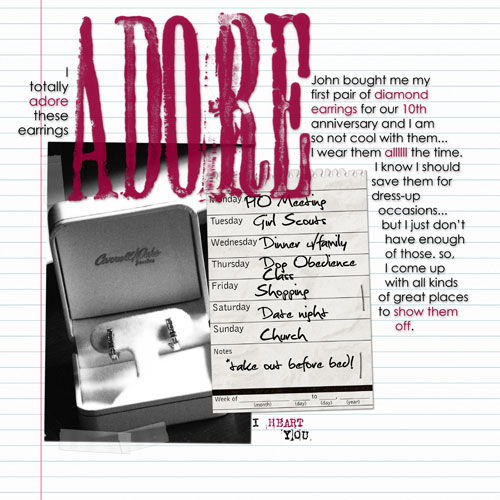 ADORE
I
totally
adore
these
earrings
John bought me my
first pair of diamond
earrings for our 10th
anniversary and I am
so not cool with them...
I wear them allllll the time.
I know I should
save them for
dress-up
occasions...
but I just don't
have enough
of those. so,
I come up
with all kinds
of great places
to show them
off.
Monday PTO Meeting
Tuesday Girl Scouts
Wednesday Dinner w/family
Thursday Dog Obedience
Class
Friday Shopping
Saturday Date night
Sunday Church
Notes
*take out before bed!
Week of to
(month) (day) (day) (year)
Jewelers
I HEART
YOU